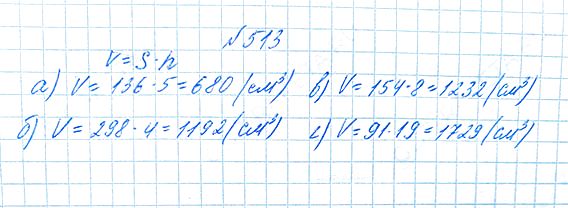 №513
V = S · h
а) V = 136 · 5 = 680 (см³) в) V = 154 · 8 = 1232 (см³)
б) V = 298 · 4 = 1192 (см³) г) V = 91 · 19 = 1729 (см³)